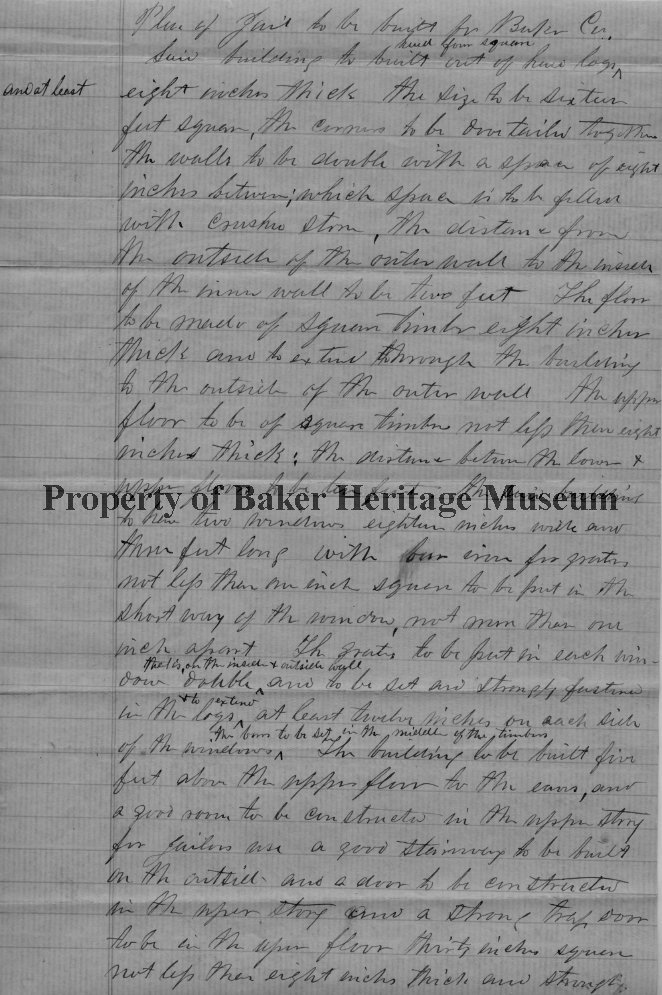 Plan of Jail to be built for Baker Co.
Said building to built out of hewd logs hewd four square
and at least
eight inches thick the size to be sixteen
feet square, the corners to be dovetailed together
the walls to be double with a space of eight
inches between; which space is to be filled
with crushed stone, the distance from
the outside of the outer wall to the inside
of the inner wall to be two feet The floor
to be made of square timber eight inches
thick and to extend through the building
to the outside of the outer wall the upper
floor to be of square timber not less than eight
inches thick: the distance between the lower &
upper floor to be feet the said building
Property of Baker Heritage Museum
to have two windows eighteen inches wide and
three feet long with bar iron for grates
not less than one inch square to be put in the
short way of the window, not more than one
inch apart The grates to be put in each win-
that is, on the inside & outside wall
dow double, and to be set and strongly fastened
& to extend
in the logs, at least twelve inches on each side
the bars to be set in the middle of the timbers
of the windows. The building to be built five
feet above the upper floor to the eaves, and
a good room to be constructed in the upper story
for jailors use a good stairway to be built
on the outside and a door to be constructed
in the upper story and a strong trap door
to be in the upper floor thirty inches square
not less than eight inches thick and strongly